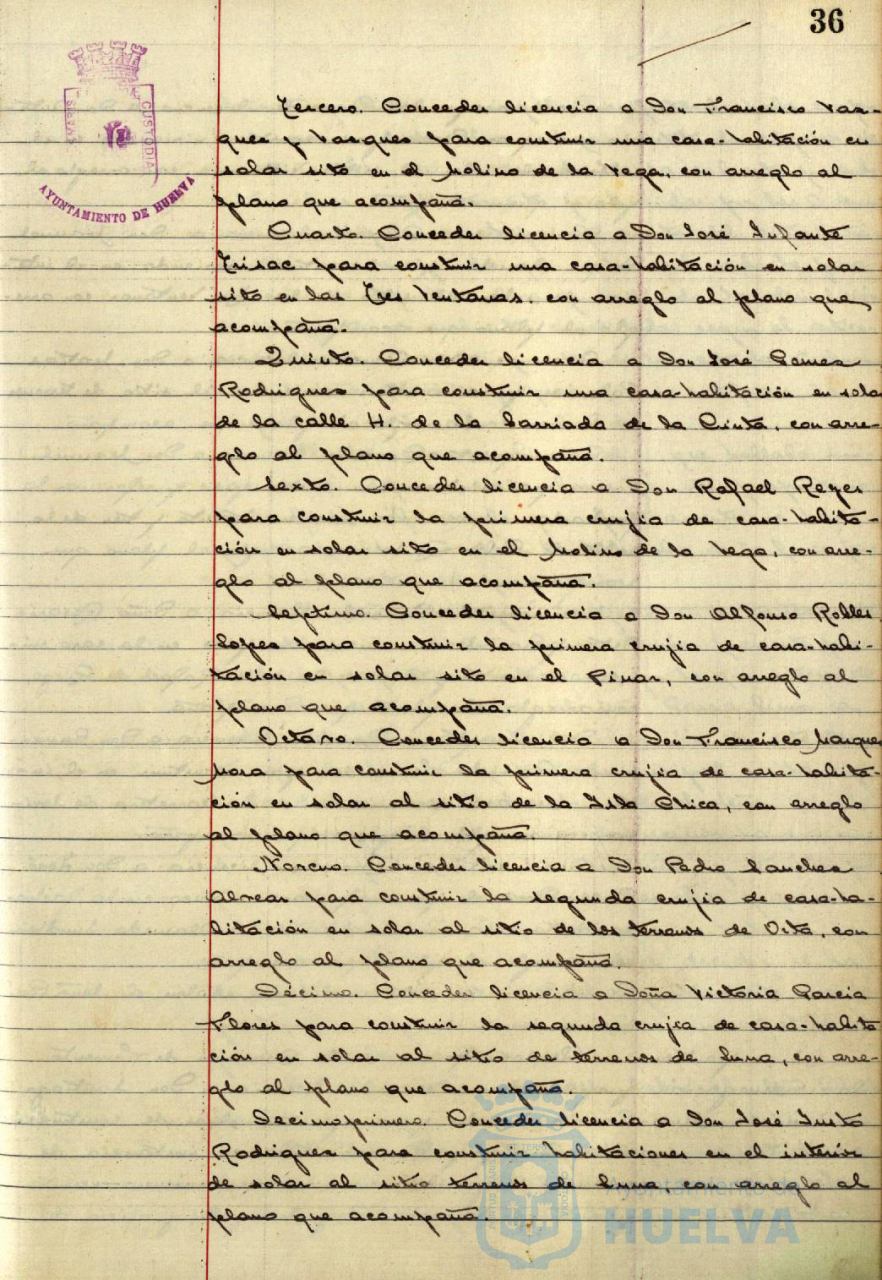 36
SIEMPRE
CUSTODIA
AYUNTAMIENTO DE HUELVA
Tercero. Conceder licencia a Don Francisco Vaz-
quez y Vazquez para construir una casa-habitación en
solar sito en el Molino de la Vega, con arreglo al
plano que acompaña.
Cuarto. Conceder licencia a Don José Infante
Trisac para construir una casa-habitación en solar
sito en las Tres Ventanas, con arreglo al plano que
acompaña.
Quinto. Conceder licencia a Don José Gomez
Rodriguez para construir una casa-habitación en solar
de la calle H. de la barriada de la Cinta, con arre-
glo al plano que acompaña.
Sexto. Conceder licencia a Don Rafael Reyes
para construir la primera crujia de casa-habita-
ción en solar sito en el Molino de la Vega, con arre-
glo al plano que acompaña.
Septimo. Conceder licencia a Don Alfonso Robles
Lopez para construir la primera crujia de casa-habi-
tación en solar sito en el Pinar, con arreglo al
plano que acompaña.
Octavo. Conceder licencia a Don Francisco Marquez
Mora para construir la primera crujia de casa-habita-
ción en solar al sitio de la Isla Chica, con arreglo
al plano que acompaña.
Noveno. Conceder licencia a Don Pedro Sanchez
Alvear para construir la segunda crujia de casa-ha-
bitación en solar al sitio de los terrenos de Orta, con
arreglo al plano que acompaña.
Décimo. Conceder licencia a Doña Victoria Garcia
Flores para construir la segunda crujia de casa-habita
ción en solar al sitio de terrenos de Luna, con arre-
glo al plano que acompaña.
Decimoprimero. Conceder licencia a Don José Justo
Rodriguez para construir habitaciones en el interior
de solar al sitio terrenos de Luna, con arreglo al
plano que acompaña.
Ayuntamiento de
HUELVA